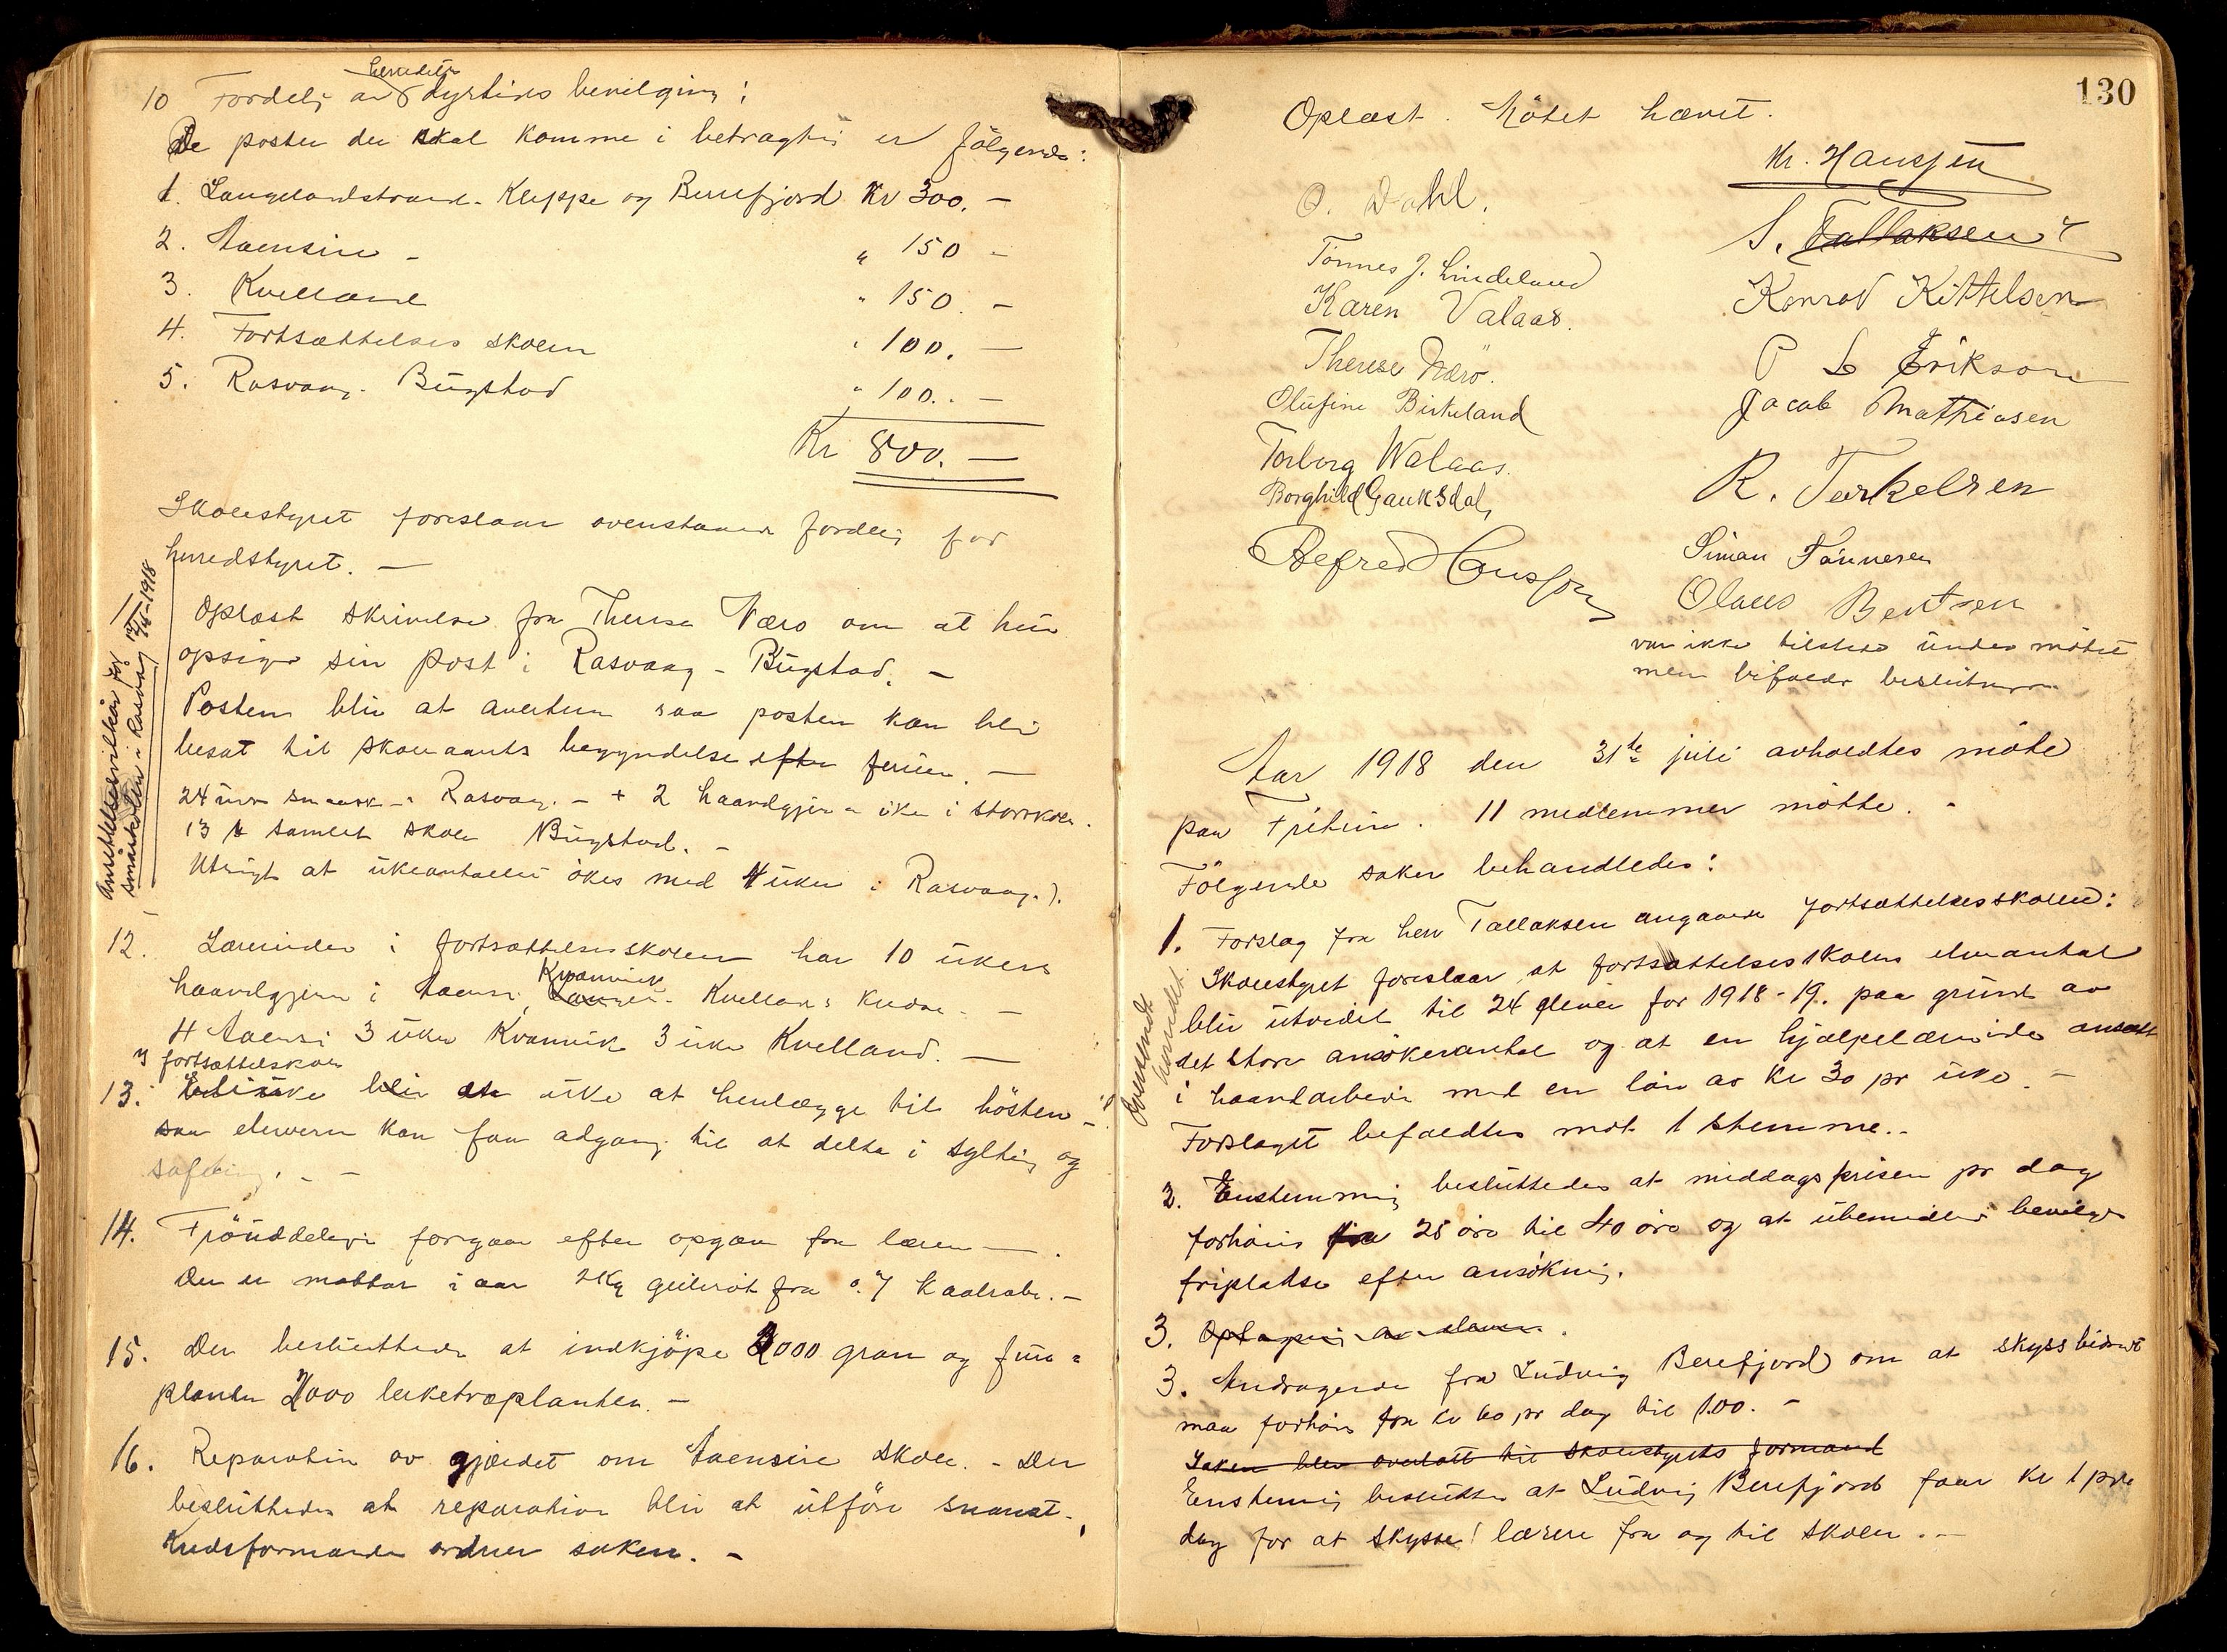 10 Fordeling av herredets dyrtids bevilgning:
De poster der skal komme i betragtning er følgende:
1. Langelandstrand - Kleppe og Berrefjord Kr 300. –
2. Aaensire – " 150 –
3. Kvelland " 150. –
4. Fortsættelses skolen " 100. –
5. Rasvaag - Bugstad " 100. –
Kr 800. –
Skolestyret foreslaar ovenstaaende fordeling for
herredstyret. –
Ansættelsesvilkår for
småskolen i Rasvåg 12/11-1918
Oplæst skrivelse fra Therese Nærø om at hun
opsiger sin post i Rasvaag - Bugstad. –
Posten blir at avertere saa posten kan bli
besat til skoleaarets begyndelse efter ferien. –
24 uker smaask. i Rasvaag. – + 2 haandgjern. uker i storskolen.
13 u samlet skole Bugstad. –
Utsigt at ukeantallet økes med 4 uker i Rasvaag.).
12. Lærerinden i fortsættelsesskolen har 10 ukers
haandgjern i Aaensire, Kvanvik Kvelland kreds. –
4 Aaensi 3 uker Kvanvik 3 uker Kvelland. –
i fortsættelskolen
13. uke at henlægge til høsten –
saa eleverne kan faa adgang til at delta i sylting og
safting. –
14. Frøuddeling forgaar efter opgave fra lærerne –.
Der er mottat i aar 2 Kg gulerot frø 0.7 Kaalrabi. –
15. Der besluttedes at indkjøpe 2000 gran og furu=
planter 2000 lerketræplanter. –
16. Reparation av gjærdet om Aaensire skole. – Der
besluttedes at reparation blir at utføre snarest.
Kredsformanden ordner saken. –
130
Oplæst. Møtet hævet.
Kr. Hanssen
O. Dahl.
S. Tallaksen
Tønnes J. Lindeland
Konrad Kittelsen
Karen Valaas.
P L Erikson
Therese Nærö.
Jacob Mathiasen
Olufine Birkeland
Torborg Walaas.
R. Terkelsen
Borghild Gauksdal,
Simon Tönnesen
Alfred Hansson
Olaus Bentsen
var ikke tilstede under møtet
men bifalder beslutningen
Aar 1918 den 31te juli avholdtes møte
paa Fritun. 11 medlemmer møtte. –
Følgende saker behandledes:
1. Forslag fra herr Tallaksen angaaende fortsættelsesskolen:
Oversendt
herredet
Skolestyret foreslaar at fortsættelsesskolens elevantal
blir utvidet til 24 elever for 1918-19. paa grund av
det store ansøkerantal og at en hjælpelærerinde ansætt
i haandarbeide med en løn av kr 30 pr uke. –
Forslaget befaldtes mot 1 stemme. –
2. Enstemmig besluttedes at middagsprisen pr dag
forhøies fra 25 øre til 40 øre og at ubemidlede bevilges
fripladse efter ansøkning.
3. Optagning av elever.
3. Andragende fra Ludvig Berrefjord om at skyssbidraget
maa forhøies fra kr 60 pr dag til 1.00. –
Saken blev overlatt til skolestyrets formand
Enstemig besluttes at Ludvig Berrefjord faar kr 1 pr
dag for at skysse lærere fra og til skolen. –